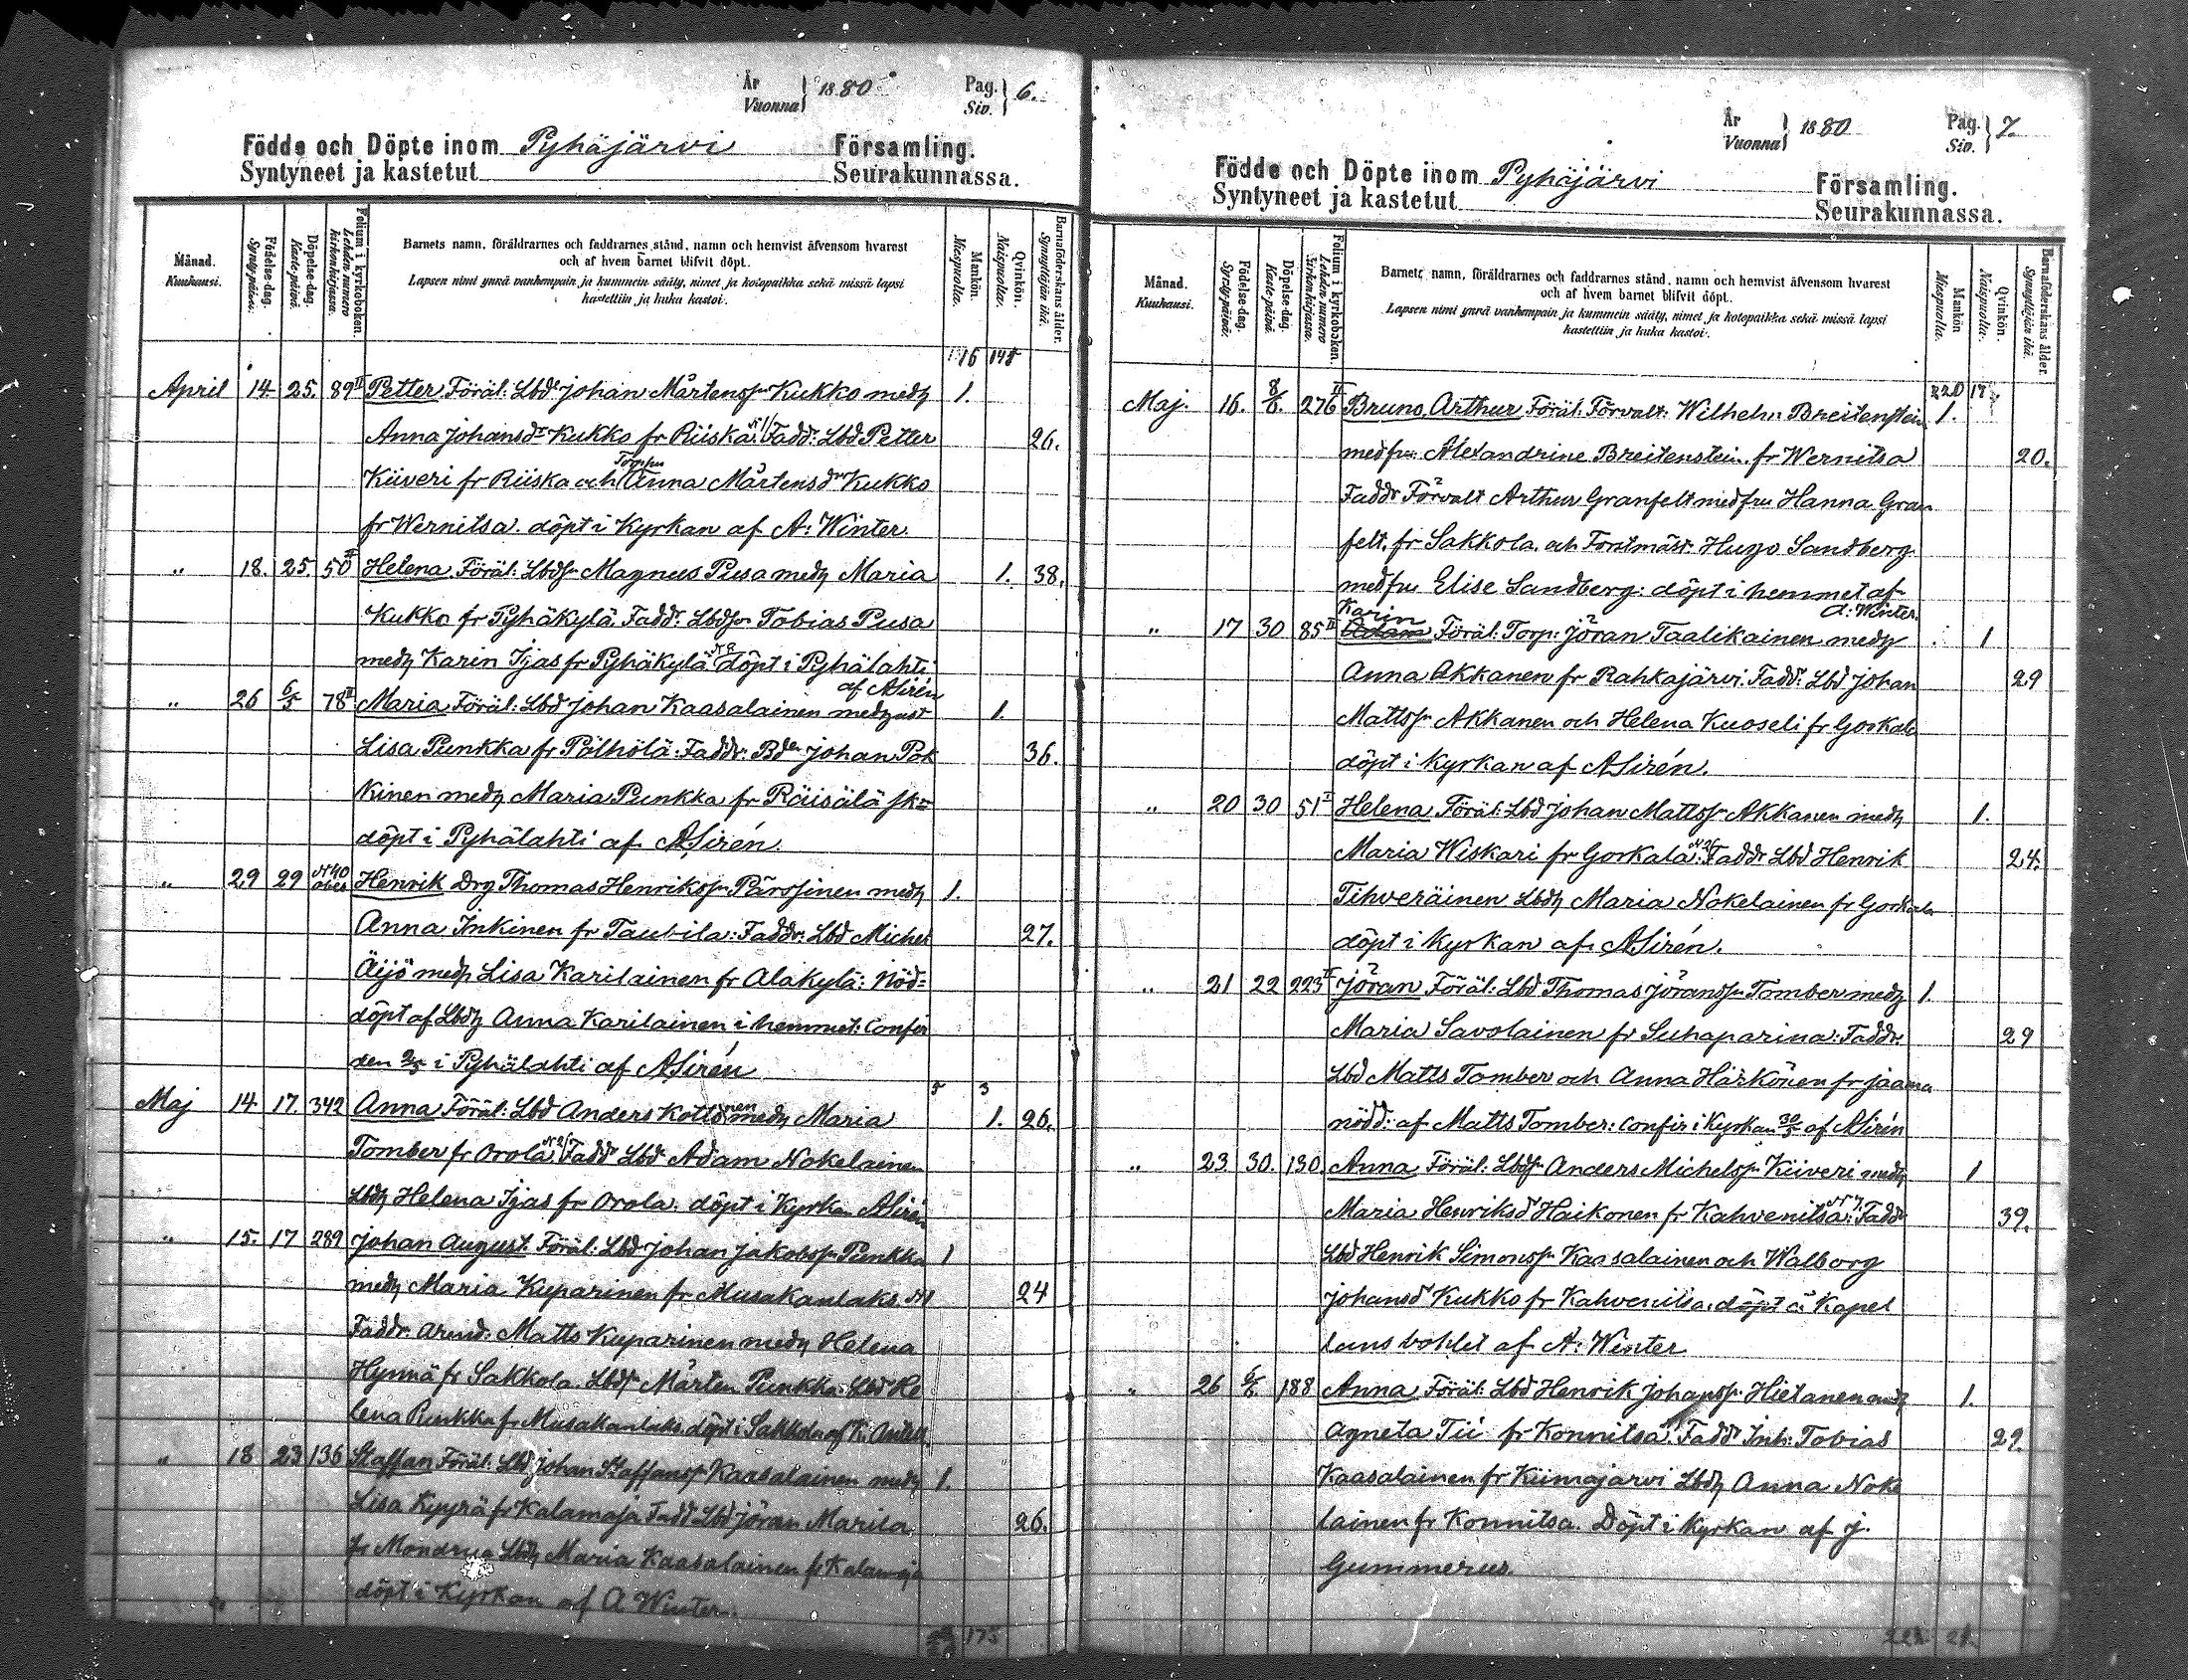 År Vuonna 1880 Pag. Siv. 6.
Födde och Döpte inom Pyhäjärvi Församling.
Syntyneet ja kastetut Seurakunnassa.
Månad. Kuukausi.
Födelse-dag. Syntypäivä.
Döpelse-dag. Kastepäivä.
Folium i kyrkoboken. Lehden numero kirkonkirjassa.
Barnets namn, föräldrarnes och faddrarnes stånd, namn och hemvist äfvensom hvarest
och af hvem barnet blifvit döpt.
Lapsen nimi ynnä vanhempain ja kummein sääty, nimet ja kotopaikka sekä missä lapsi
kastettiin ja kuka kastoi.
Mankön. Miespuolia.
Qvinkön. Naispuolia.
Barnaföderskans ålder. Synnyttäjän ikä.
April 14. 25. 89 II Petter Föräl: Lbd Johan Mårtenss: Kukko medh 1.
Anna Johansdr Kukko fr Riiska: Fadd: Lbd Petter 26.
Kiiveri fr Riiska och Anna Mårtensdr Kukko
fr Wernitsa. döpt i Kyrkan af A: Winter.
" 18. 25. 50 II Helena Föräl: Lbds: Magnus Pusa medh Maria 1. 38.
Kukko fr Pyhäkylä Fadd: Lbdsn Tobias Pusa
medh Karin Ijas fr Pyhäkylä döpt i Pyhälahti
af ASirén
" 26 6/5 78 II Maria Föräl: Lbd Johan Kaasalainen 1.
Lisa Punkka fr Pölhölä: Faddr: Bdn Johan Pok 36.
kinen medh Maria Punkka fr Räisälä sk=
döpt i Pyhälahti af ASirén.
" 29 29 N 40 Henrik Drg Thomas Henrikss: Pärssinen medh 1.
Anna Inkinen fr Taubila: Faddr: Lbd Michel 27.
Äijö medh Lisa Karilainen fr Alakylä: Nöd=
döpt af Lbdh Anna Karilainen i hemmet: Confir
den 2/5 i Pyhälahti af ASirén
5 3
Maj 14. 17. 342 Anna Föräl: Lbd Anders Kottonen medh Maria 1. 26.
Tomber fr Orola Fadd Lbd Adam Nokelainen
Lbdh Helena Ijas fr Orola. döpt i Kyrkan ASirén
" 15. 17 289 Johan August. Föräl: Lbd Johan Jakobss: Punkka 1
medh Maria Kuparinen fr Musakanlaks 24
Faddr. Arend: Matts Kuparinen medh Helena
Hynnä fr Sakkola. Lbds Mårten Punkka Lbd He
lena Punkka fr Musakanlaks döpt i Sakkola af K:
" 18 23 136 Staffan Föräl: Lbd Johan Staffanss: Kaasalainen medh 1.
Lisa Kyyrä fr Kalamaja Fadd Lbd Jöran Marila 26.
fr Lbdh Maria Kaasalainen fr Kalamaja
döpt i Kyrkan af A Winter.
År Vuonna 1880 Pag. Siv. 7.
Födde och Döpte inom Pyhäjärvi Församling.
Syntyneet ja kastetut Seurakunnassa.
Månad. Kuukausi.
Födelse-dag. Syntypäivä.
Döpelse-dag. Kastepäivä
Folium i kyrkoboken. Lehden numero kirkonkirjassa.
Barnets namn, föräldrarnes och faddrarnes stånd, namn och hemvist äfvensom hvarest
och af hvem barnet blifvit döpt.
Lapsen nimi ynnä vanhempain ja kummein sääty, nimet ja kotopaikka sekä missä lapsi
kastettiin ja kuka kastoi.
Mankön Miespuolia.
Qvinkön. Naispuolia.
Barnaföderskans ålder. Synnyttäjän ikä.
Maj. 16. 8/6. 276 II Bruno Arthur Föräl: Förvalt: Wilhelm Breitenstein 1.
med fru Alexandrine Breitenstein. fr Wernitsa 20.
Faddr Förvalt Arthur Granfelt med fru Hanna Gran
felt. fr Sakkola. och Forstmäst: Hugo Sandberg
med fru Elise Sandberg: döpt i hemmet af
A: Winter.
" 17 30 85 II Karin Föräl: Torp: Jöran Taalikainen medh 1
Anna Akkanen fr Rahkajärvi: Fadd: Lbd Johan 29
Mattss: Akkanen och Helena Kuoseli fr Gorkala
döpt i Kyrkan af ASirén.
" 20 30 51 I Helena Föräl: Lbd Johan Mattss: Akkanen medh 1.
Maria Wiskari fr Gorkala: Faddr Lbd Henrik 24.
Tihveräinen Lbdh Maria Nokelainen fr Gorkala
döpt i Kyrkan af ASirén.
" 21 22 223 II Jöran Föräl: Lbd Thomas Jöranss: Tomber medh 1.
Maria Savolainen fr Suhaparina: Faddr: 29
Lbd Matts Tomber och Anna Härkönen fr Jaama
nödd: af Matts Tomber: Confir i Kyrkan 30/5 af ASirén
" 23 30. 130. Anna Föräl: Lbds: Anders Michelss: Kiiveri medh 1
Maria Henriksd Haikonen fr Kahvenitsa: Fadd 39.
Lbd Henrik Simonss: Kaasalainen och Walborg
Johansd Kukko fr Kahvenitsa. döpt å Kapel
lans bohlet af A: Winter
" 26 6/6 188 Anna Föräl: Lbd Henrik Johanss: Hietanen medh 1.
Agneta Tii fr Konnitsa: Faddr Inh: Tobias 29.
Kaasalainen fr Kiimajarvi Lbdh Anna Noke
lainen fr Konnitsa. Döpt i Kyrkan af J.
Gummerus.